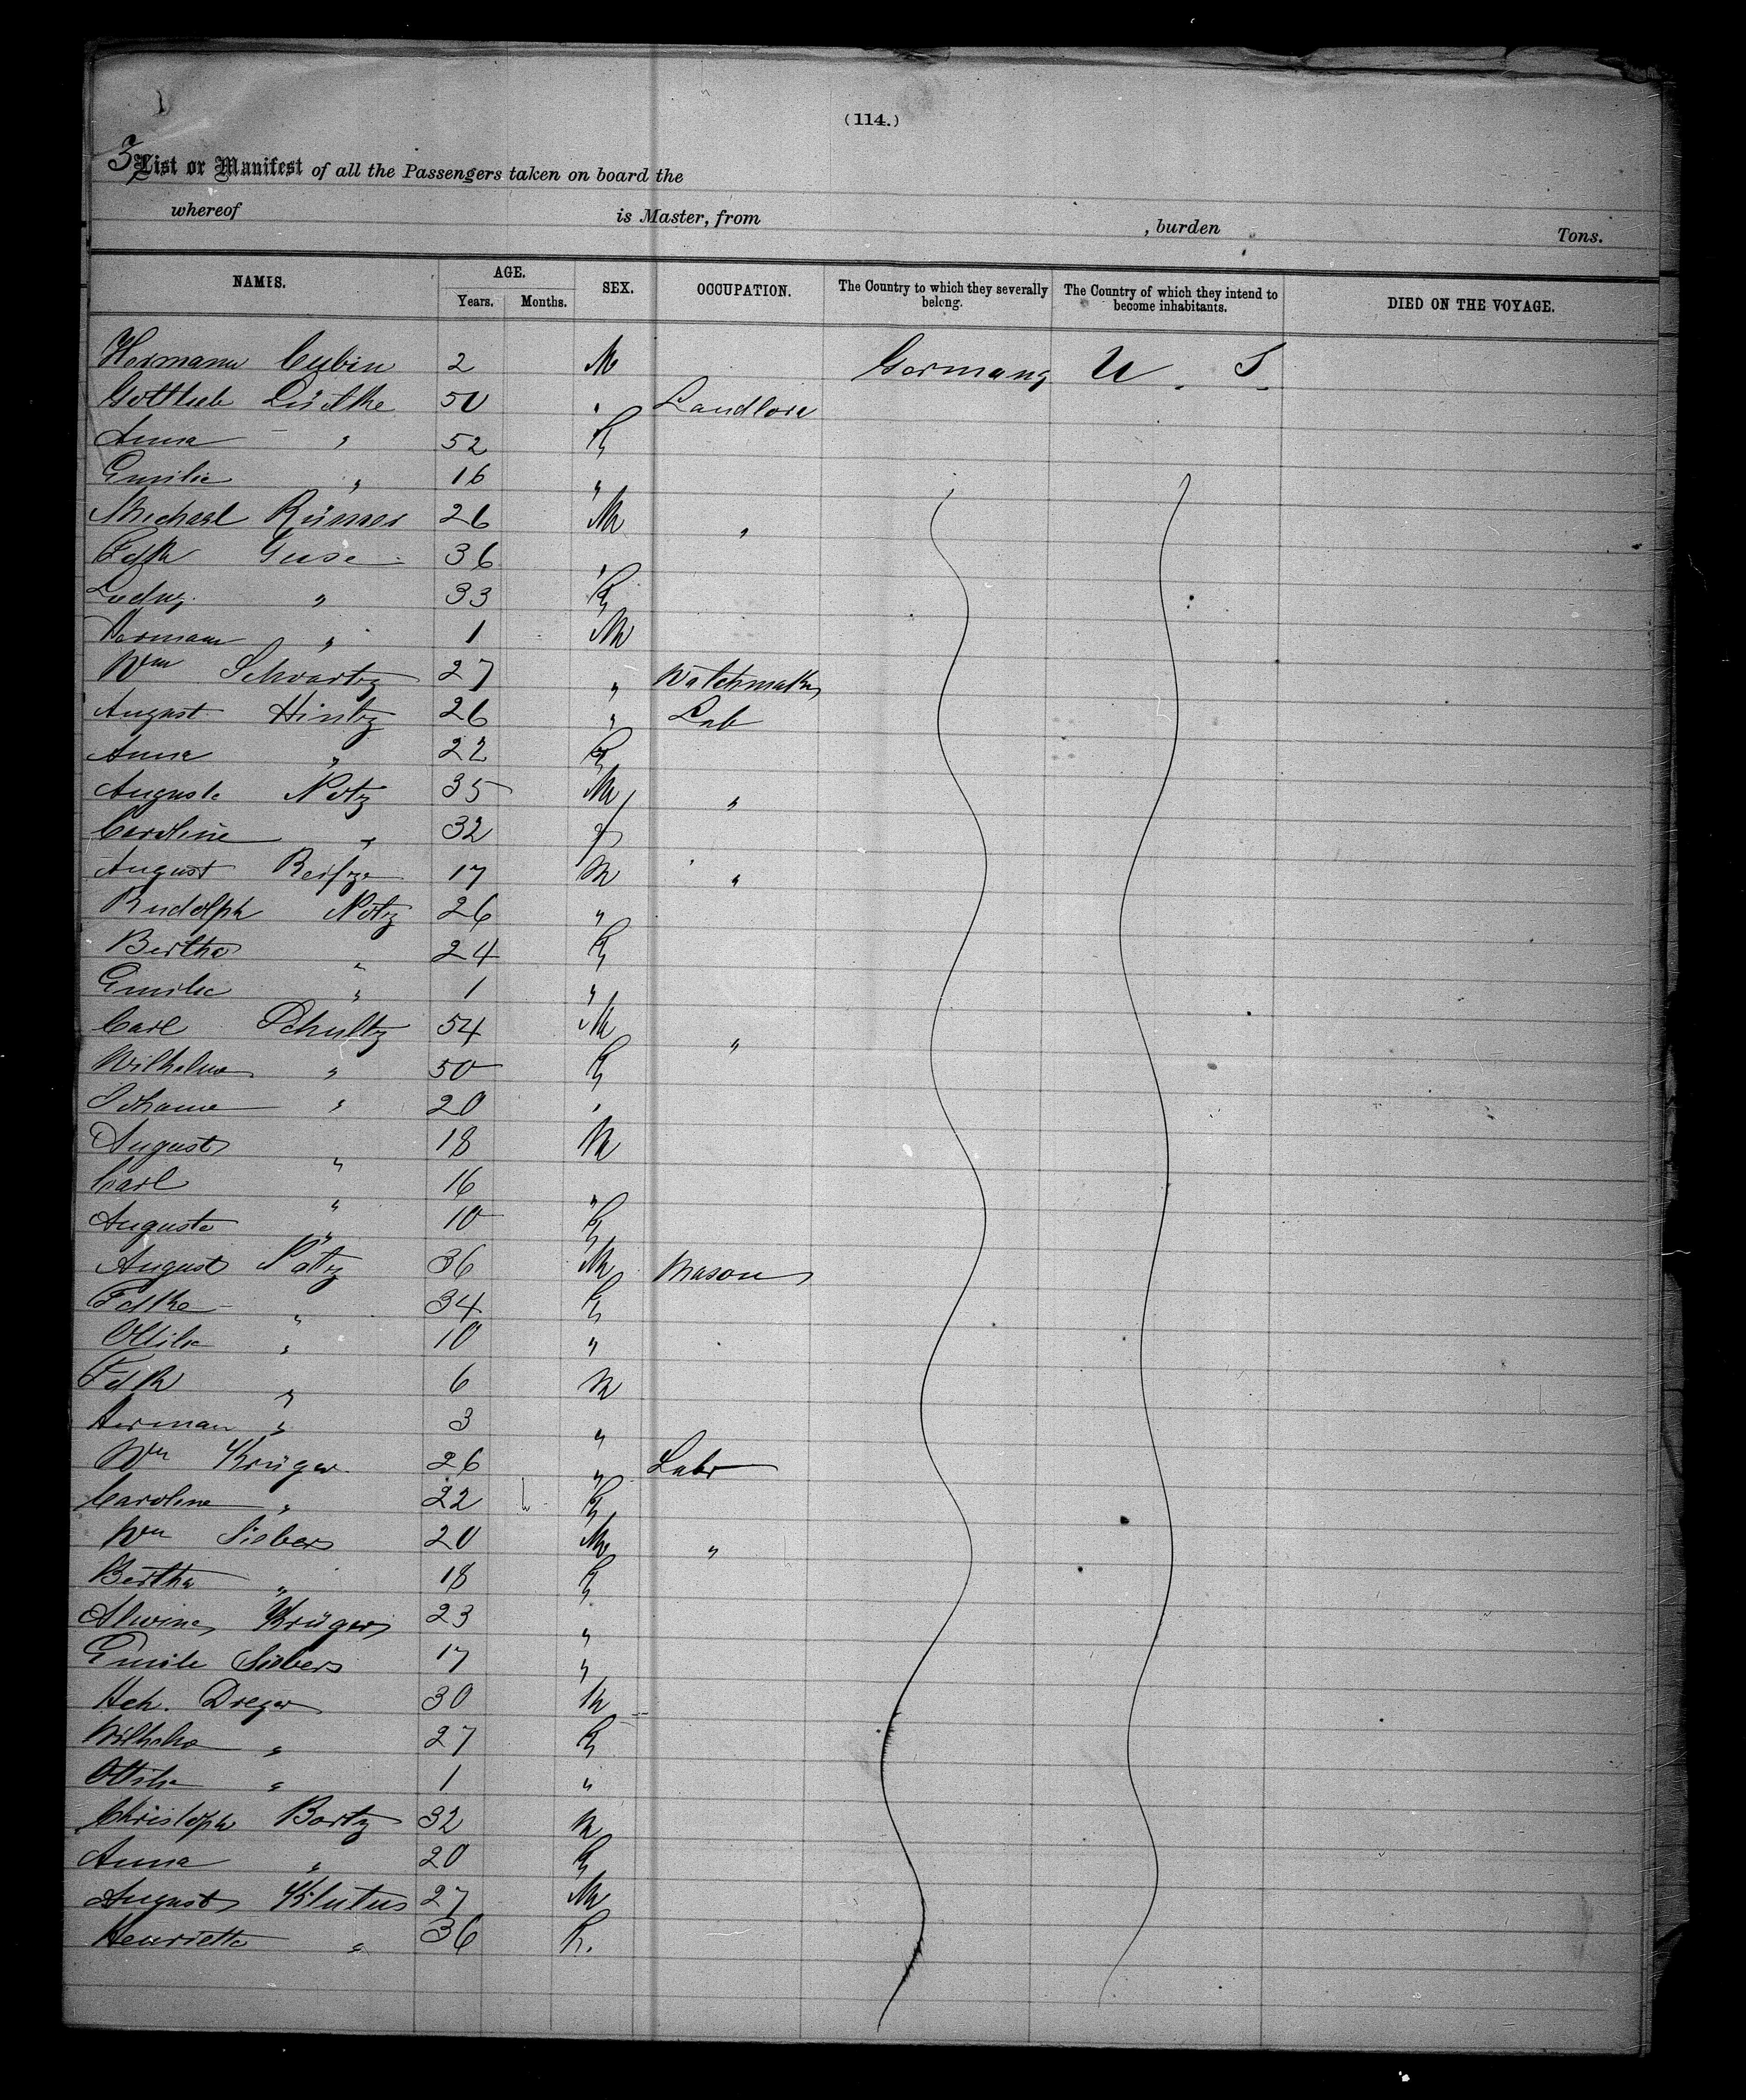 (114.)
3 List or Manifest of all the Passengers taken on board the
whereof is Master, from , burden Tons.
NAMES. AGE. SEX. OCCUPATION. The Country to which they severally belong. The Country of which they intend to become inhabitants. DIED ON THE VOYAGE.
Years. Months.
Hermann 2 M Germany U. S.
Gottlieb Lüdtke 50 "
Anna " 52 F
Emilie " 16 "
Michael 26 M "
Fdk Guse 36 "
Ludwg " 33 F
Hermann " 1 M
Wm Schwartz 27 " Watchmaker
August Hintz 26 " Lab
Anna " 22 F
August Notz 35 M "
Caroline " 32 F
August 17 M "
Rudolph Notz 26 "
Bertha " 24 F
Emilie " 1 "
Carl Schultz 54 M "
Wilhelme " 50 F
Johanne " 20 "
August " 18 M
Carl " 16 "
Auguste " 10 F
August Patz 36 M Mason
Fdke " 34 F
Ottilie " 10 "
Fdk " 6 M
Herman " 3 "
Wm Krüger 26 " Labr
Caroline " 22 F
Wm Siebers 20 M "
Bertha " 18 F
Alwine Krüger 23 "
Emilie Siebers 17 "
Hch. Dreger 30 M
Wilhelm " 27 F
Ottilie " 1 "
Christoph Bartz 32 M
Anna " 20 F
August Klutus 27 M
Henriette " 36 F.